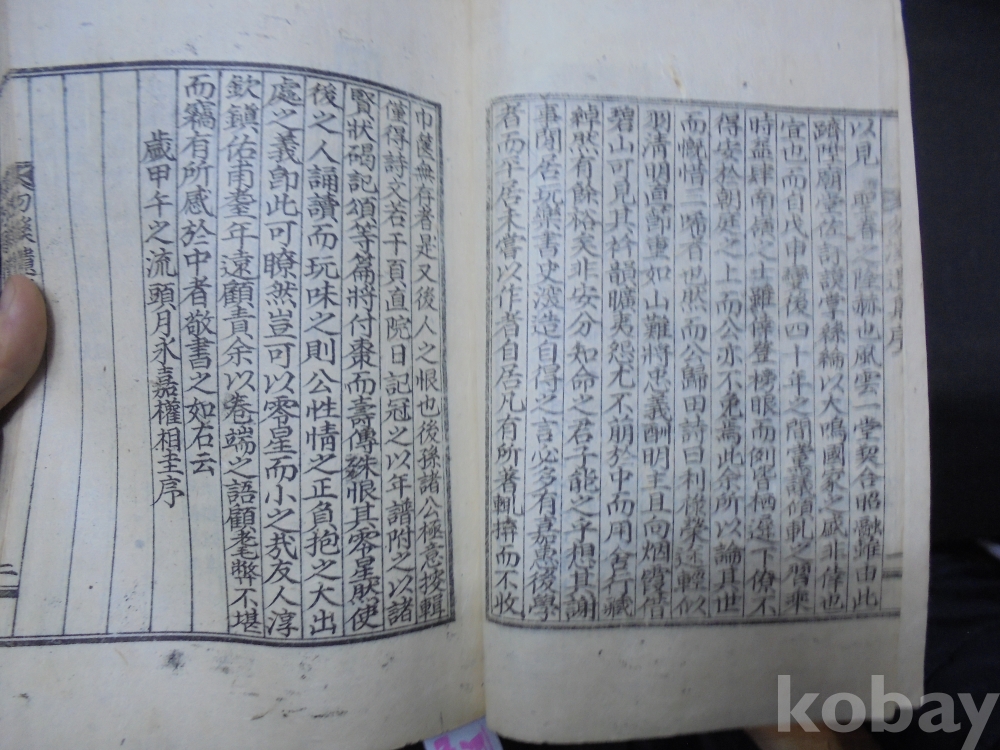 以見 聖眷之隆赫也風雲一堂契合昭融雖由此
躋陞廟堂佐訏謨掌絲綸以大鳴國家之盛非倖也
宜也而自戊申變後四十年之間黨議傾軋之習乘
時益肆南嶺之士雖倖登榜眼而例皆栖遑下僚不
得安於朝庭之上而公亦不免焉此余所以論其世
而慨惜三唏者也然而公歸田詩曰利祿榮達輕似
羽淸明直節重如山難將忠義酬明主且向烟霞借
碧山可見其衿韻曠夷怨尤不萠於中而用舍行藏
綽然有餘裕矣非安分知命之君子能之乎想其謝
事閒居玩樂書史深造自得之言必多有嘉惠後學
者而平居未嘗以作者自居凡有所著輒擠而不收
巾篋無存者是又後人之恨也後孫諸公極意按輯
僅得詩文若干頁直院日記冠之以年譜附之以諸
賢狀碣記須等篇將付棗而壽傳殊恨其零星然使
後之人誦讀而玩味之則公性情之正負抱之大出
處之義卽此可瞭然豈可以零星而小之㢤友人淳
欽鎭佑甫耋年遠顧責余以卷端之語顧耄弊不堪
而竊有所感於中者敬書之如右云
歲甲午之流頭月永嘉權相圭序
二
kobay